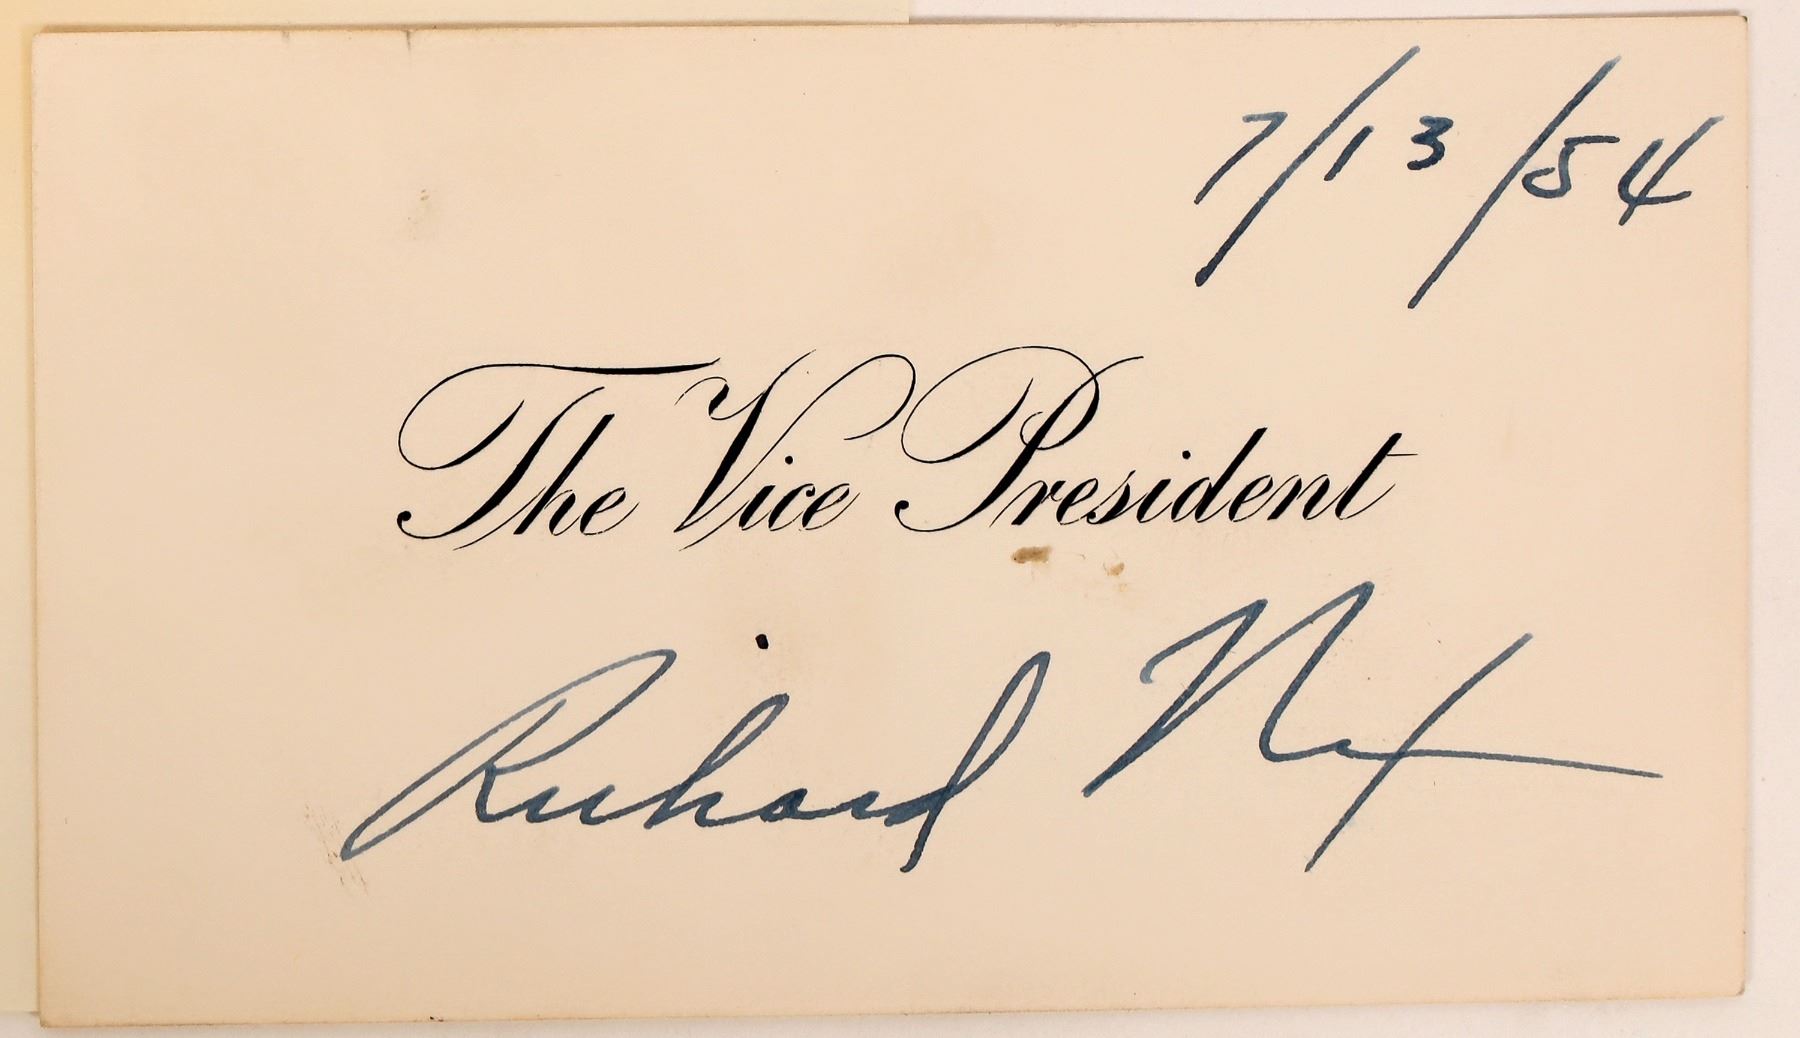 7/13/54
The Vice President
Richard Nix